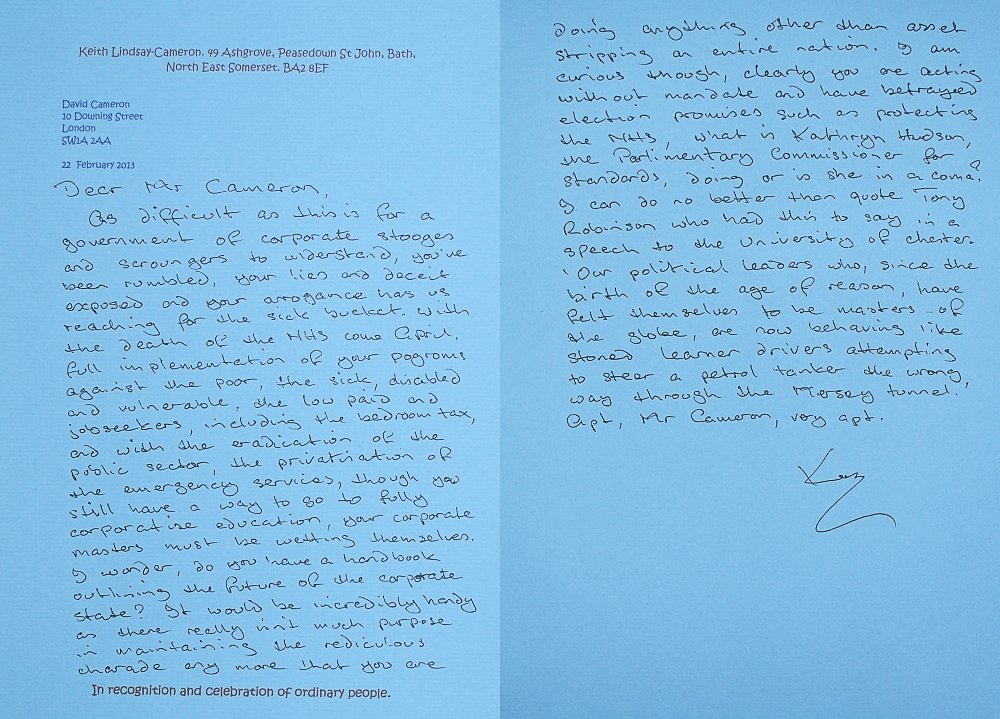 Keith Lindsay-Cameron. 49 Ashgrove, Peasedown St John, Bath,
North East Somerset. BA2 8EF
David Cameron
10 Downing Street
London
SW1A 2AA
22 February 2013
Dear Mr Cameron,
As difficult as this is for a
government of corporate stooges
and scroungers to understand, you've
been rumbled, your lies and deceit
exposed and your arrogance has us
reaching for the sick bucket. With
the death of the NHS come April,
full implementation of your pogroms
against the poor, the sick, disabled
and vulnerable, the low paid and
jobseekers, including the bedroom tax,
and with the eradication of the
public sector, the privatisation of
the emergency services, though you
still have a way to go to fully
corporatise education, your corporate
masters must be wetting themselves.
I wonder, do you have a handbook
outlining the future of the corporate
state? It would be incredibly handy
as there really isn't much purpose
in maintaining the rediculous
charade any more that you are
In recognition and celebration of ordinary people.
doing anything other than asset
stripping an entire nation. I am
curious though, clearly you are acting
without mandate and have betrayed
election promises such as protecting
the NHS, what is Kathryn Hudson,
the Parlimentary Commissioner for
standards, doing or is she in a coma?
I can do no better than quote Tony
Robinson who had this to say in a
speech to the University of Chester.
'Our political leaders who, since the
birth of the age of reason, have
felt themselves to be masters of
the globe, are now behaving like
stoned learner drivers attempting
to steer a petrol tanker the wrong
way through the Mersey tunnel.'
Apt, Mr Cameron, very apt.